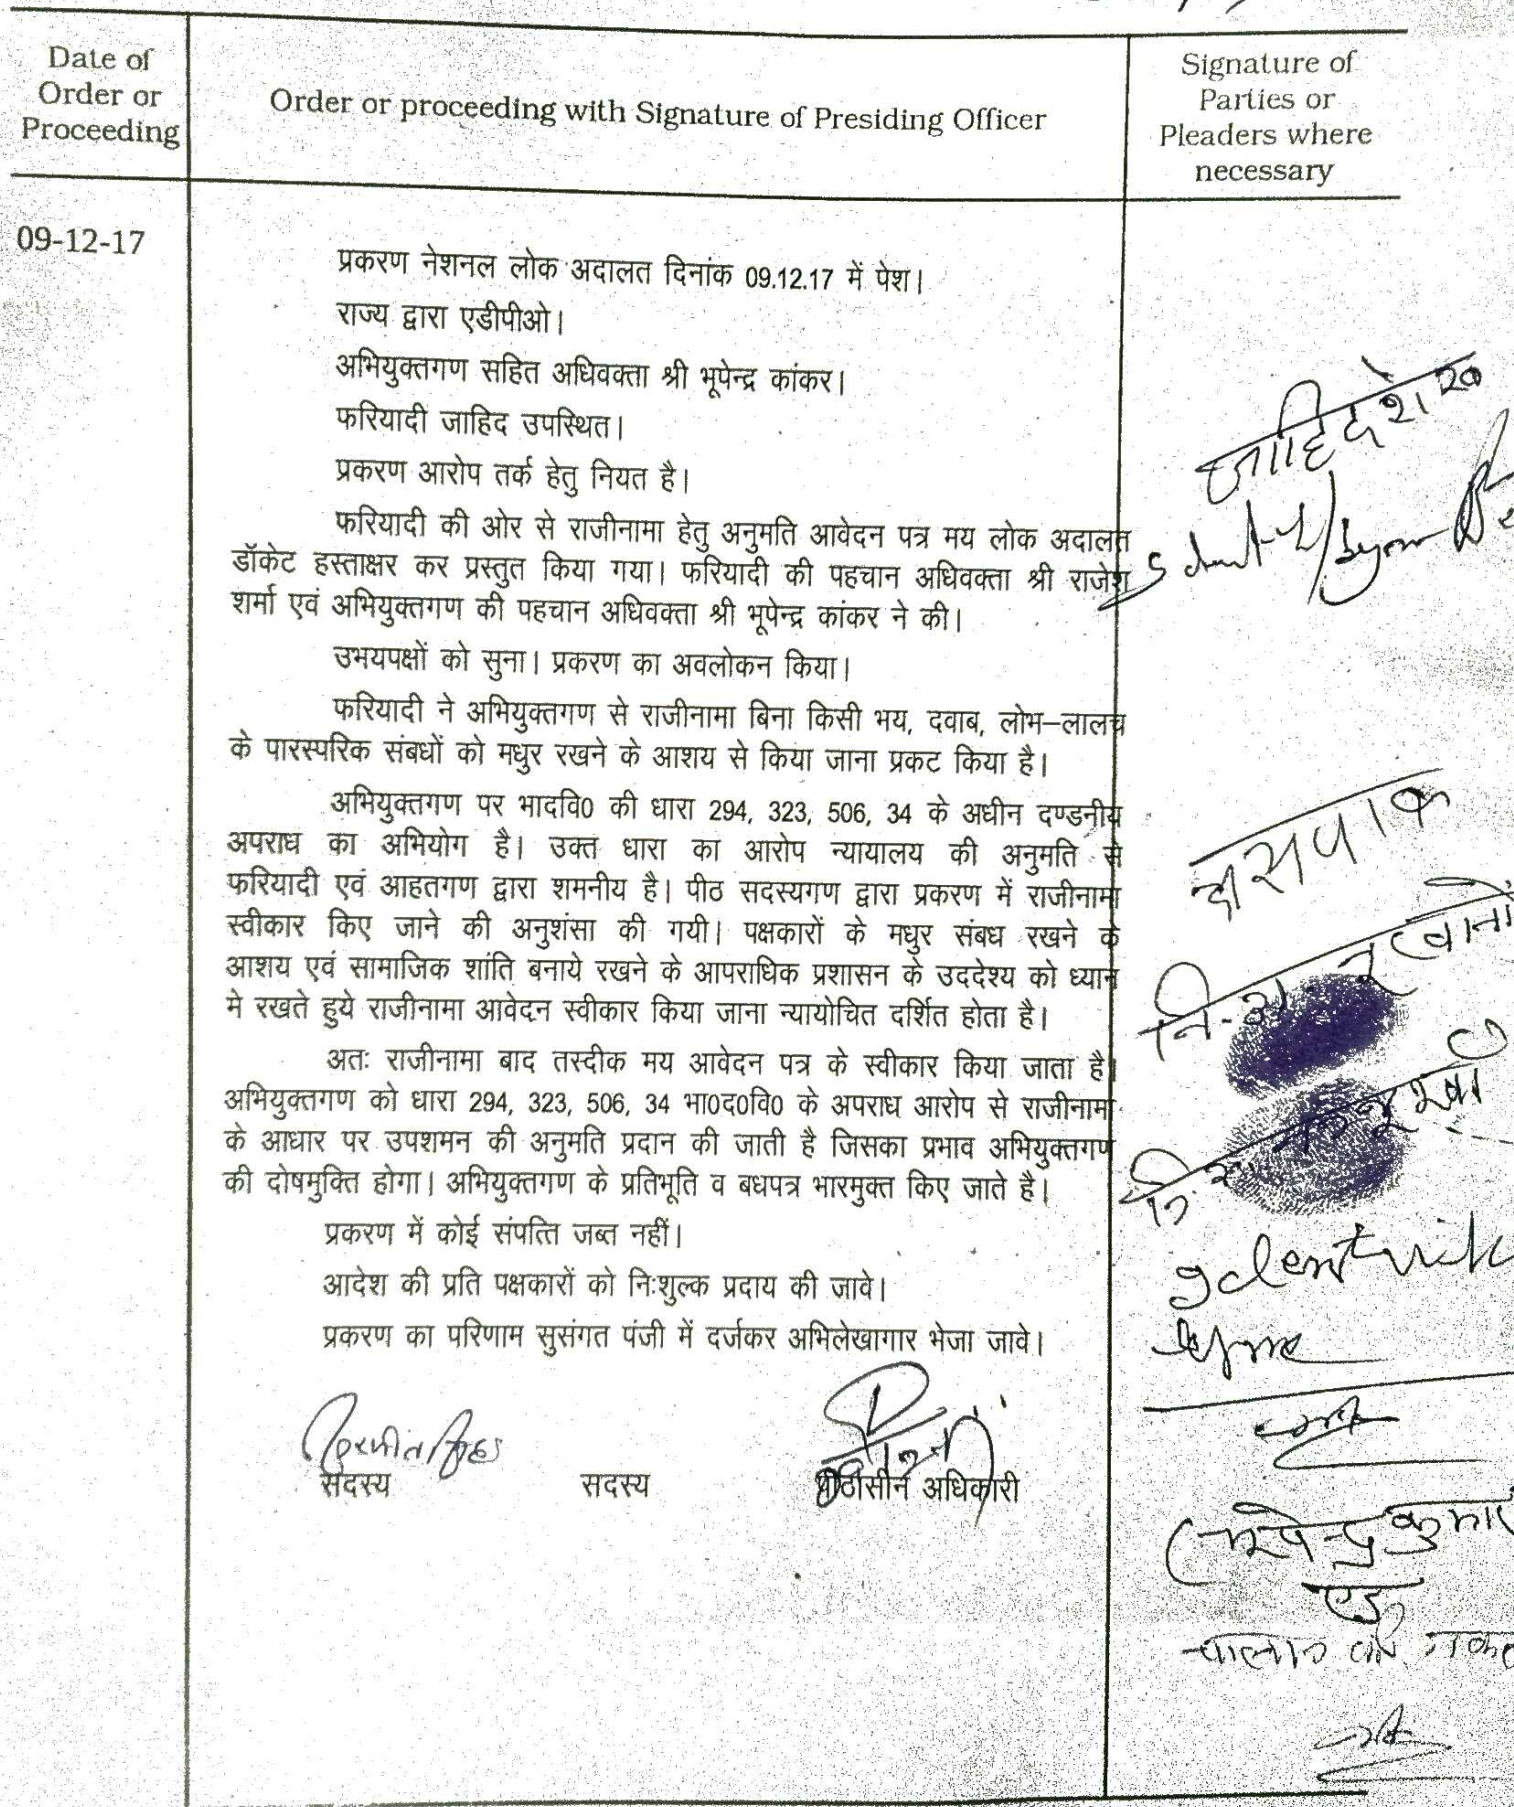 Date of
Order or
Proceeding
Order or proceeding with Signature of Presiding Officer
Signature of
Parties or
Pleaders where
necessary
09-12-17
प्रकरण नेशनल लोक अदालत दिनांक 09.12.17 में पेश।
राज्य द्वारा एडीपीओ।
अभियुक्तगण सहित अधिवक्ता श्री भूपेन्द्र कांकर।
फरियादी जाहिद उपस्थित।
प्रकरण आरोप तर्क हेतु नियत है।
फरियादी की ओर से राजीनामा हेतु अनुमति आवेदन पत्र मय लोक अदालत
डॉकेट हस्ताक्षर कर प्रस्तुत किया गया। फरियादी की पहचान अधिवक्ता श्री राजेश
शर्मा एवं अभियुक्तगण की पहचान अधिवक्ता श्री भूपेन्द्र कांकर ने की।
उभयपक्षों को सुना। प्रकरण का अवलोकन किया।
फरियादी ने अभियुक्तगण से राजीनामा बिना किसी भय, दवाब, लोभ–लालच
के पारस्परिक संबधों को मधुर रखने के आशय से किया जाना प्रकट किया है।
अभियुक्तगण पर भादवि0 की धारा 294, 323, 506, 34 के अधीन दण्डनीय
अपराध का अभियोग है। उक्त धारा का आरोप न्यायालय की अनुमति से
फरियादी एवं आहतगण द्वारा शमनीय है। पीठ सदस्यगण द्वारा प्रकरण में राजीनामा
स्वीकार किए जाने की अनुशंसा की गयी। पक्षकारों के मधुर संबध रखने के
आशय एवं सामाजिक शांति बनाये रखने के आपराधिक प्रशासन के उददेश्य को ध्यान
मे रखते हुये राजीनामा आवेदन स्वीकार किया जाना न्यायोचित दर्शित होता है।
अतः राजीनामा बाद तस्दीक मय आवेदन पत्र के स्वीकार किया जाता है।
अभियुक्तगण को धारा 294, 323, 506, 34 भा0द0वि0 के अपराध आरोप से राजीनामा
के आधार पर उपशमन की अनुमति प्रदान की जाती है जिसका प्रभाव अभियुक्तगण
की दोषमुक्ति होगा। अभियुक्तगण के प्रतिभूति व बधपत्र भारमुक्त किए जाते है।
प्रकरण में कोई संपत्ति जब्त नहीं।
आदेश की प्रति पक्षकारों को निःशुल्क प्रदाय की जावे।
प्रकरण का परिणाम सुसंगत पंजी में दर्जकर अभिलेखागार भेजा जावे।
सदस्य सदस्य पीठासीन अधिकारी
जाहिद शेख